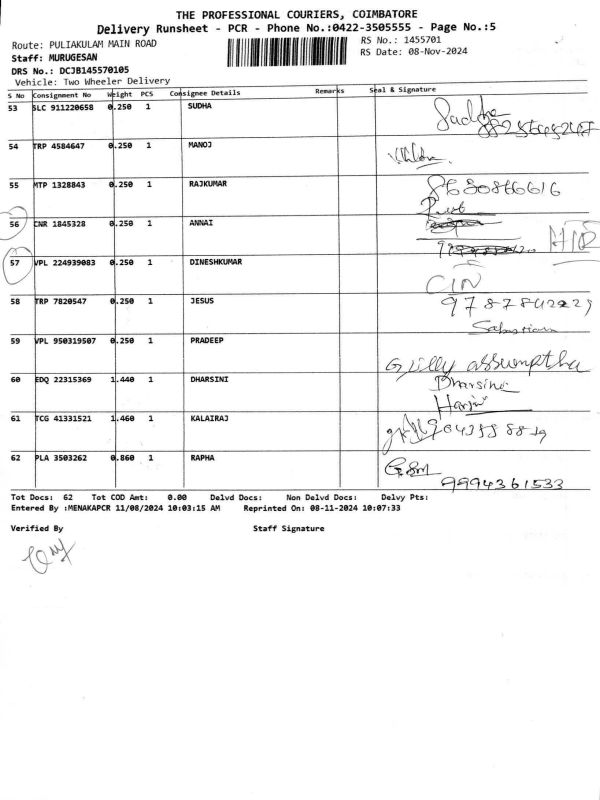 THE PROFESSIONAL COURIERS, COIMBATORE
Delivery Runsheet - PCR - Phone No.:0422-3505555 - Page No.:5
Route: PULIAKULAM MAIN ROAD
RS No.: 1455701
Staff: MURUGESAN
RS Date: 08-Nov-2024
DRS No.: DCJB145570105
Vehicle: Two Wheeler Delivery
S No Consignment No Weight PCS Consignee Details Remarks Seal & Signature
53 SLC 911220658 0.250 1 SUDHA
54 TRP 4584647 0.250 1 MANOJ
55 MTP 1328843 0.250 1 RAJKUMAR
8680866616
56 CNR 1845328 0.250 1 ANNAI
57 VPL 224939083 0.250 1 DINESHKUMAR
CIN
58 TRP 7820547 0.250 1 JESUS
59 VPL 950319507 0.250 1 PRADEEP
60 EDQ 22315369 1.440 1 DHARSINI
Dharsini
61 TCG 41331521 1.460 1 KALAIRAJ
62 PLA 3503262 0.860 1 RAPHA
9994361533
Tot Docs: 62 Tot COD Amt: 0.00 Delvd Docs: Non Delvd Docs: Delvy Pts:
Entered By :MENAKAPCR 11/08/2024 10:03:15 AM Reprinted On: 08-11-2024 10:07:33
Verified By Staff Signature